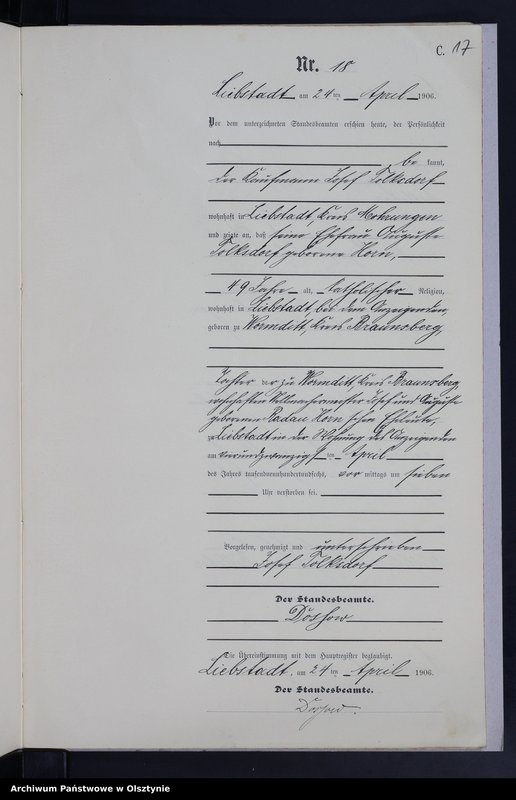 C. 17
Nr. 18
Liebstadt am 24 ten April 1906.
Vor dem unterzeichneten Standesbeamten erschien heute, der Persönlichkeit
nach
be kannt,
der Kaufmann Josef Tolksdorf
wohnhaft in Liebstadt, Kreis Mohrungen
und zeigte an, daß seine Ehefrau Auguste
Tolksdorf geborene Horn,
49 Jahre alt, katholischer Religion,
wohnhaft in Liebstadt, bei dem Anzeigenden,
geboren zu Wormditt, Kreis Braunsberg,
Tochter der zu Wormditt, Kreis Braunsberg,
wohnhaften Josef und Auguste
geborenen Radau Horn'schen Eheleute,
zu Liebstadt in der Wohnung des Anzeigenden
am vierundzwanzigs ten April
des Jahres tausendneunhundertundsechs, vor mittags um sieben
Uhr verstorben sei.
Vorgelesen, genehmigt und unterschrieben
Josef Tolksdorf
Der Standesbeamte.
Die Übereinstimmung mit dem Hauptregister beglaubigt.
Liebstadt, am 24 ten April 1906.
Der Standesbeamte.
Archiwum Państwowe w Olsztynie